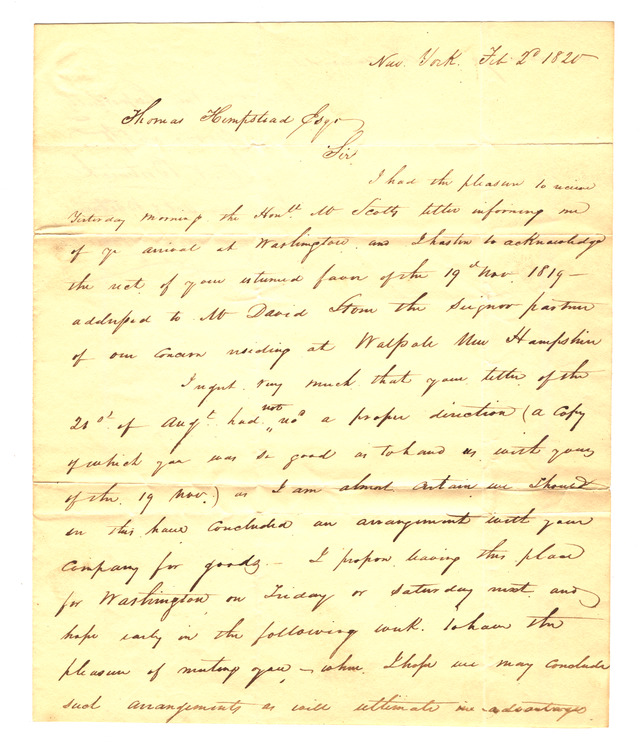 New York. Feb 2d 1820
Thomas Hempstead Esqr
Sir
I had the pleasure to receive
Yesterday morning the Honble Mr Scotts letter informing me
of yr arrival at Washington and I hasten to acknowledge
the rect of your esteemed favor of the 19th Nov. 1819 —
addressed to Mr David Stone the Seignor partner
of our Concern residing at Walpole New Hampshire
I regret very much that your letter of the
21st of Augt had not a proper direction (a Copy
of which you was so good as to hand us with yours
of the 19 Nov.) as I am almost certain we Should
have Concluded an arrangement with your
Company for goods — I propose leaving this place
for Washington on Friday or Saturday next and
hope early in the following week to have the
pleasure of meeting you, — when I hope we may Conclude
such arrangements as will ultimate in advantage